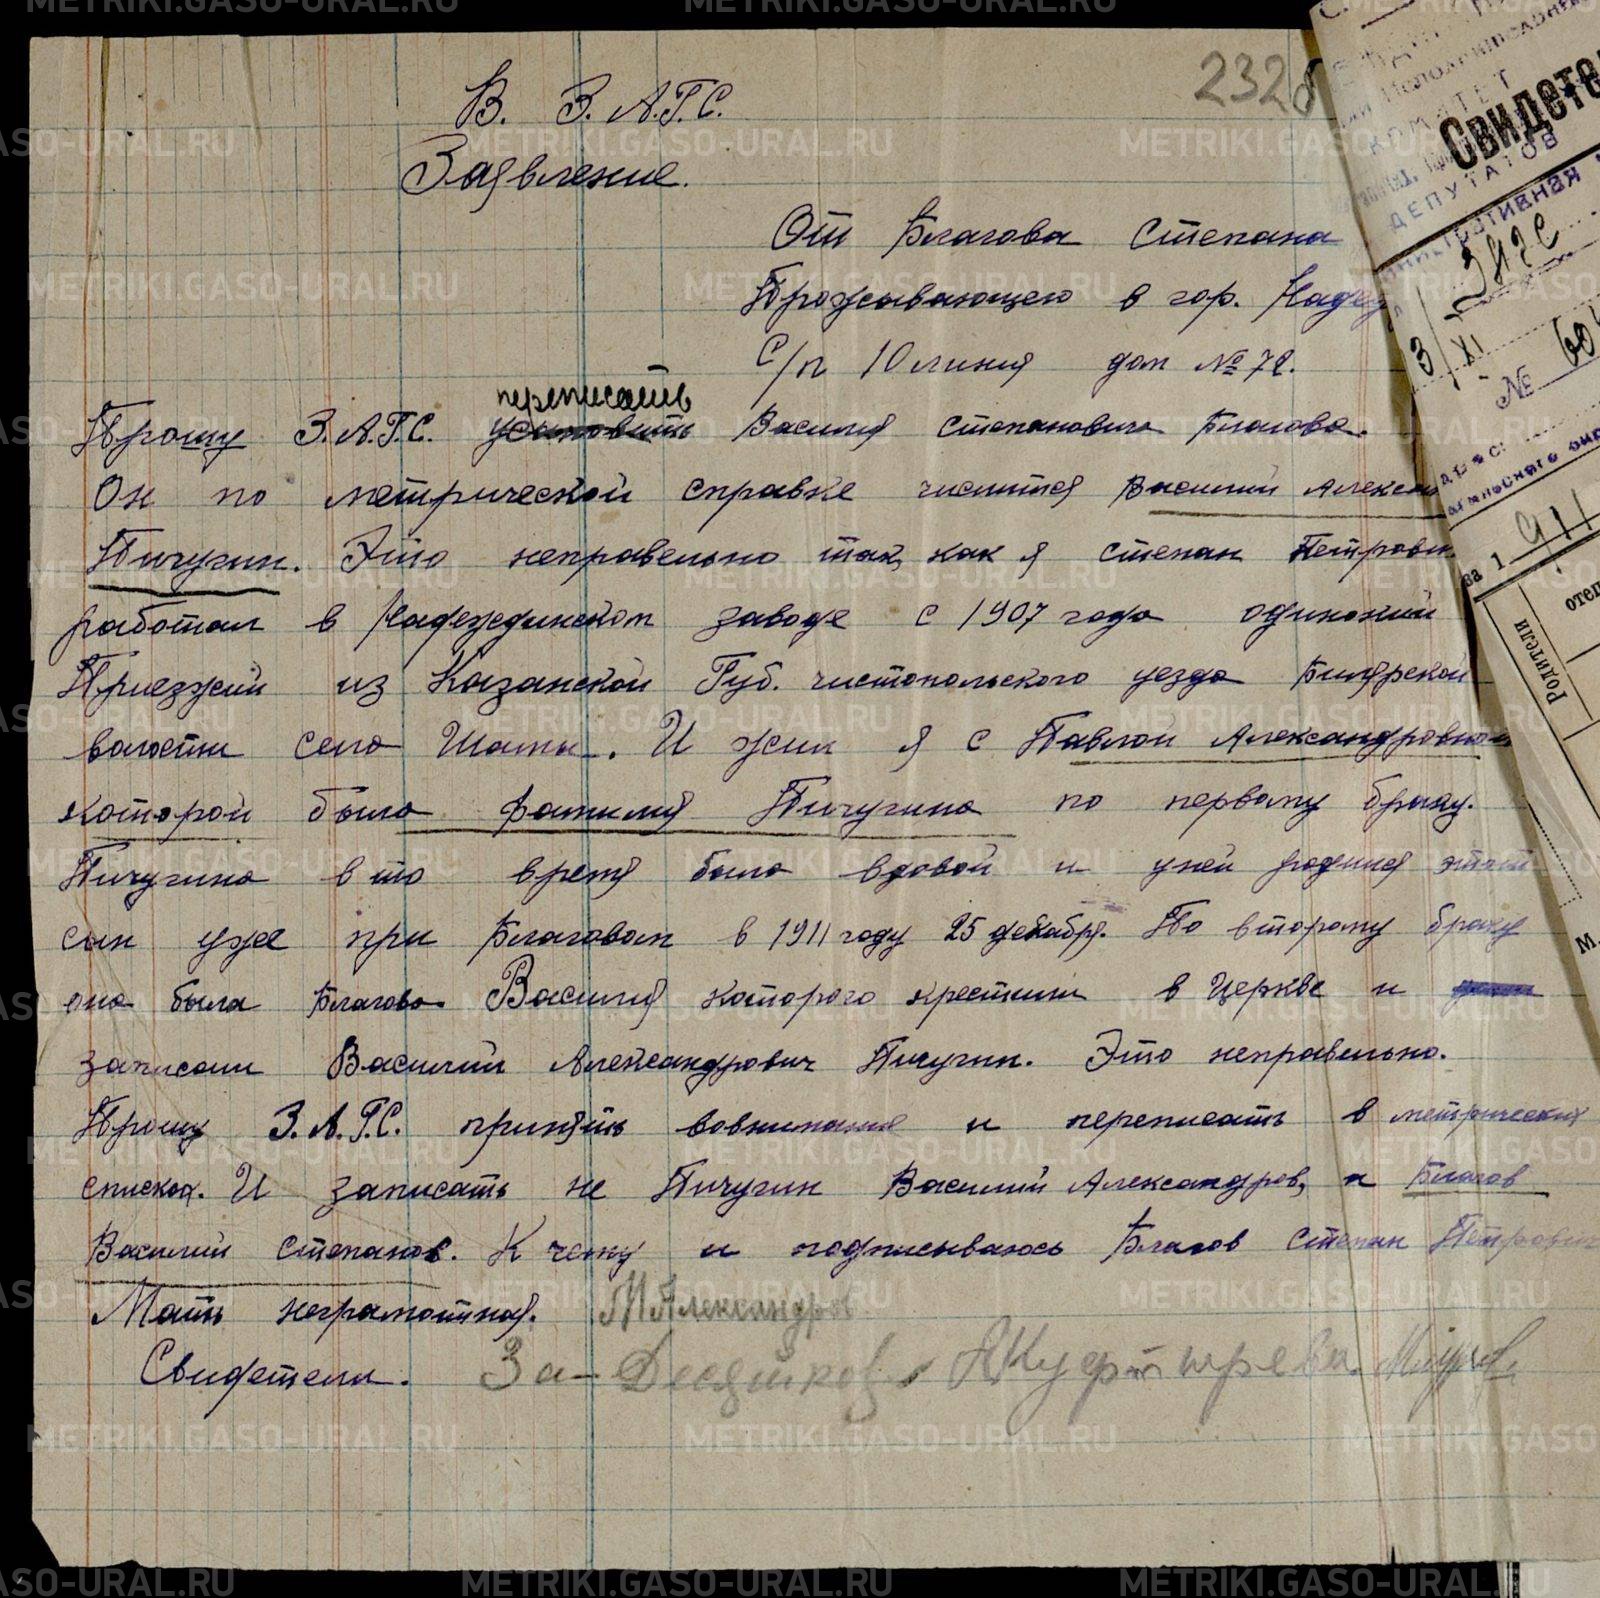 2328
В. З.А.Г.С.
Заявление.
От Благова Степана
Проживающего в гор.
С/п 10 линия дом № 72.
переписать
Прошу З.А.Г.С. усыновить Василия Степановича Благова.
Он по метрической справке числится Василий Алексан
Пичугин. Это неправельно так, как я Степан Петрови
работал в Надеждинском заводе с 1907 года одинокий
Приезжий из Казанской Губ. чистопольского уезда Билярской
волости село Шамы. И жил я с Павлой Александровной
которой была фамилия Пичугина по первому браку.
Пичугина в то время была вдовой и уней родился этот
сын уже при Благовом в 1911 году 25 декабря. По второму браку
она была Благова. Василия которого крестили в Церкве и
записали Василий Александрович Пичугин. Это неправельно.
Прошу З.А.Г.С. принять вовнимание и переписать в метрических
списках. И записать не Пичугин Василий Александров, а Благов
Василий Степанов. К чему и подписываюсь Благов Степан Петрович
Мать неграмотная. Александров
Свидетели. За
Свидете
КОМИТЕТ
ДЕПУТАТОВ
Загс
3/XI
№ 60
за 1911
Родители
отец
М.
METRIKI.GASO-URAL.RU